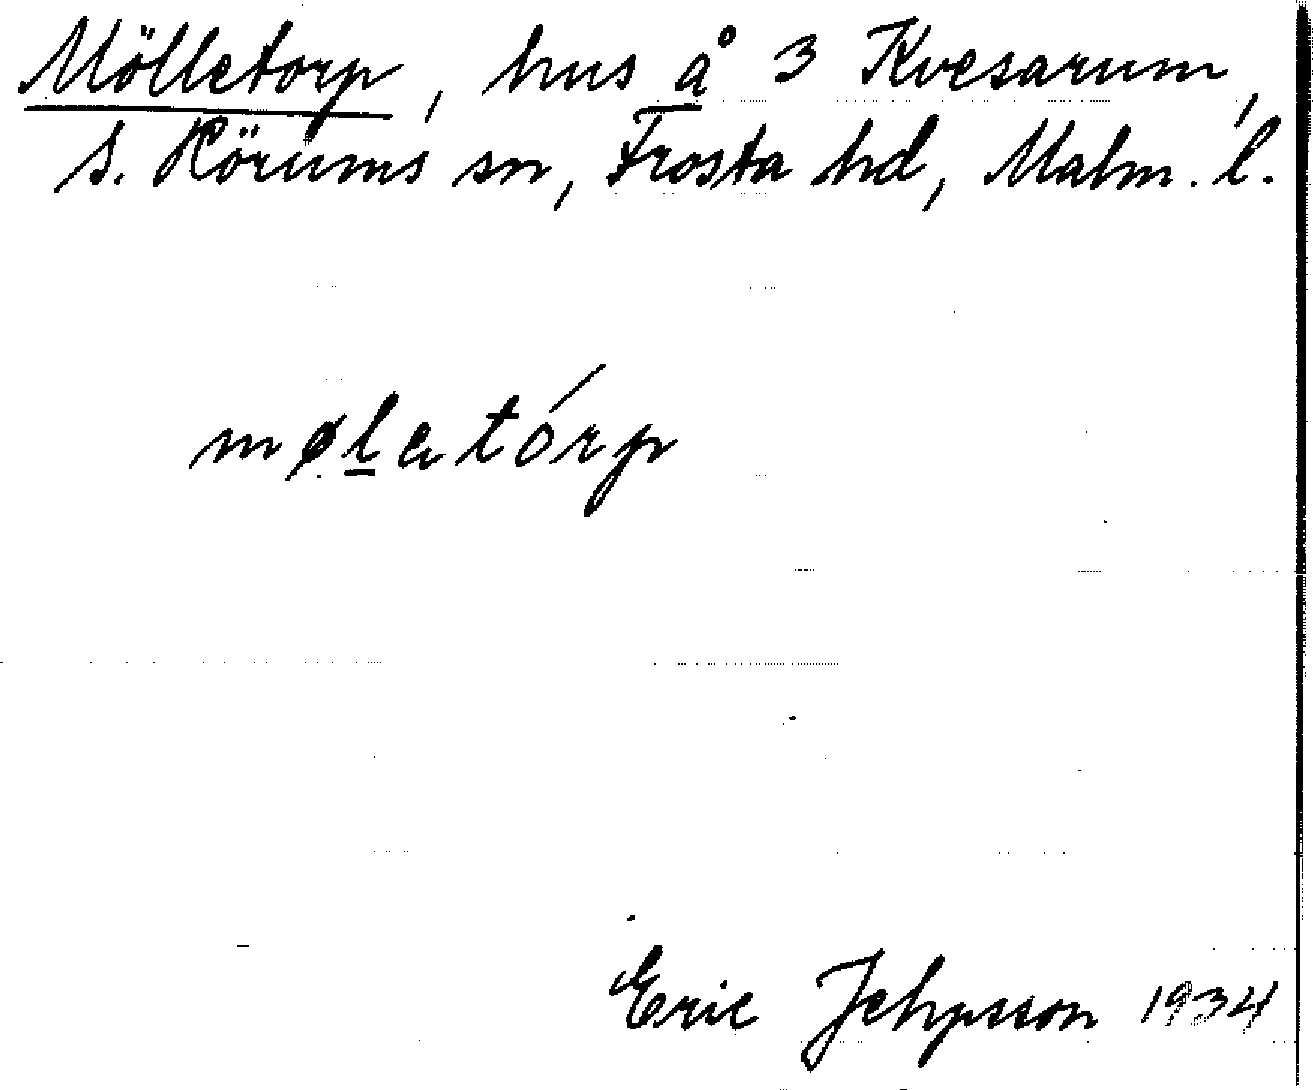 Mölletorp, hus å 3 Kvesarum,
S. Rörums sn, Frosta hd, Malm. l.
møl̲atórp
Eric Jehpsson 1934